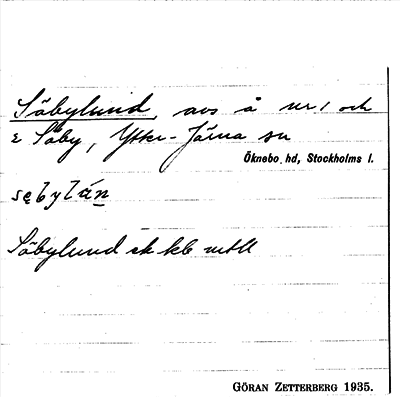 Säbylund, avs å nr 1 och
2 Säby, Ytter-Järna sn
Öknebo hd, Stockholms l.
sębylán
Säbylund ek kb mtll
GÖRAN ZETTERBERG 1935.